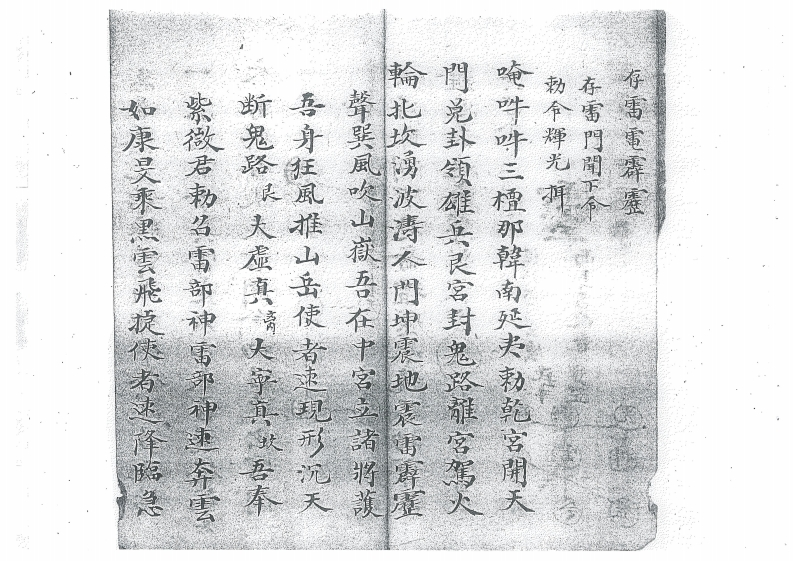 存雷電霹靂
存雷門聞下令
勅令輝光
唵吽吽三檀那韓南延夬勅乾宮開天
門兌卦領雄兵艮宮封鬼路離宮駕火
輪北坎湧波濤人門坤震地震雷霹靂
聲巽風吹山嶽吾在中宮立諸將護
吾身狂風推山岳使者速現形沉天
断鬼路艮大虛真大寧真坎吾奉
紫微君勅召雷部神雷部神速奔雲
如康旻乘黑雲飛捉使者速降臨急